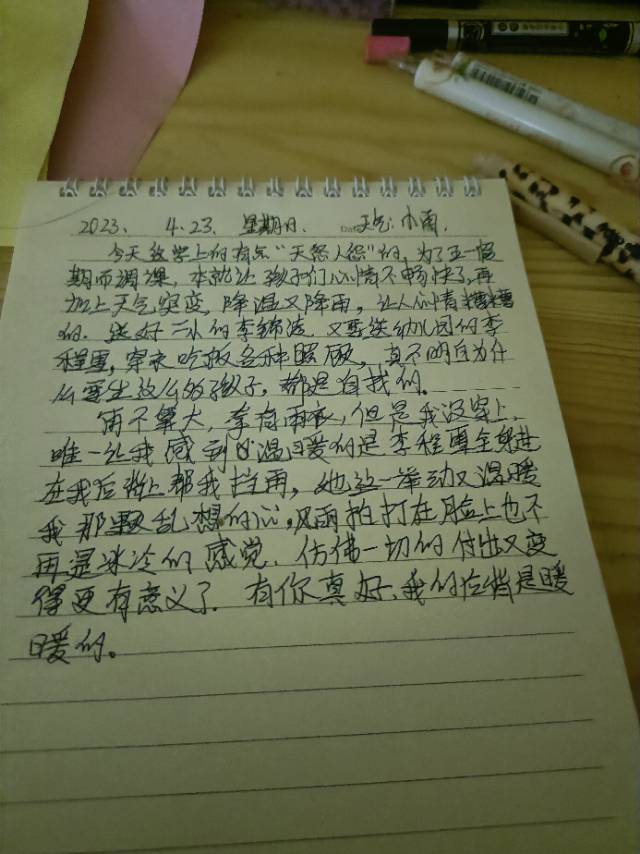 2023. 4.23. 星期日. 天气:小雨.
今天放学上的有点"天怨人怨"的,为了五一假
期而调课,本就让孩子们心情不畅快了,再
加上天气突变,降温又降雨,让人心情糟糟
的.送好二小的李锦 又要送幼儿园的李
程 ,穿衣吃饭各种照顾,真不明白为什
么要生这么多孩子,都是自找的。
雨不算大,拿有雨衣,但是我没穿上,
唯一让我感到温暖的是李程 全身进
在我后背上帮我挡雨,她这一举动又温暖
我那颗乱想的心,风雨拍打在脸上也不
再是冰冷的感觉.仿佛一切的付出又变
得更有意义了.有你真好、我的后背是暖
暖的。